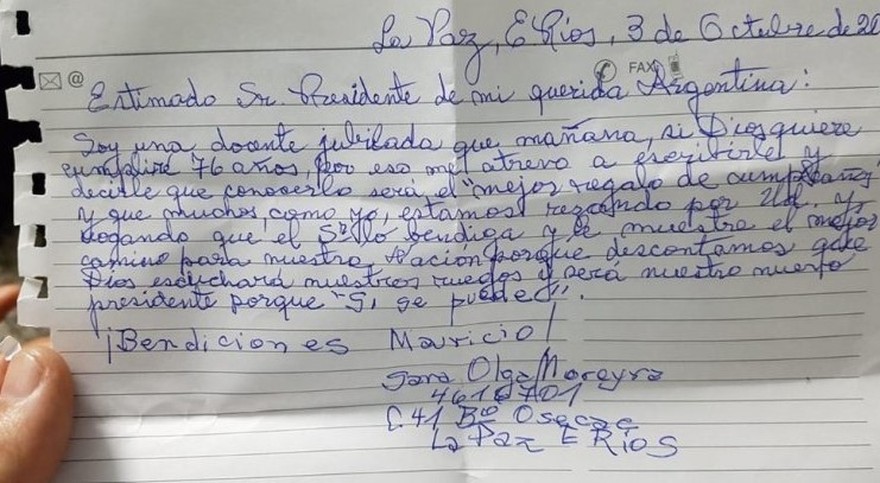 La Paz, E. Ríos, 3 de Octubre de 20
@ FAX
Estimado Sr. Presidente de mi querida Argentina:
Soy una docente jubilada que mañana, si Dios quiere
cumpliré 76 años, por eso me atrevo a escribirle y
decirle que conocerlo será el "mejor regalo de cumpleaños"
y que muchos, como yo, estamos rezando por Ud. y
rogando que el Sr. lo bendiga y le muestre el mejor
camino para nuestra Nación porque descontamos que
Dios escuchará nuestros ruegos y será nuestro nuevo
presidente porque "Sí, se puede".
¡Bendiciones Mauricio!
Sara Olga Moreyra
C.41 Bº Osecac
La Paz E Ríos